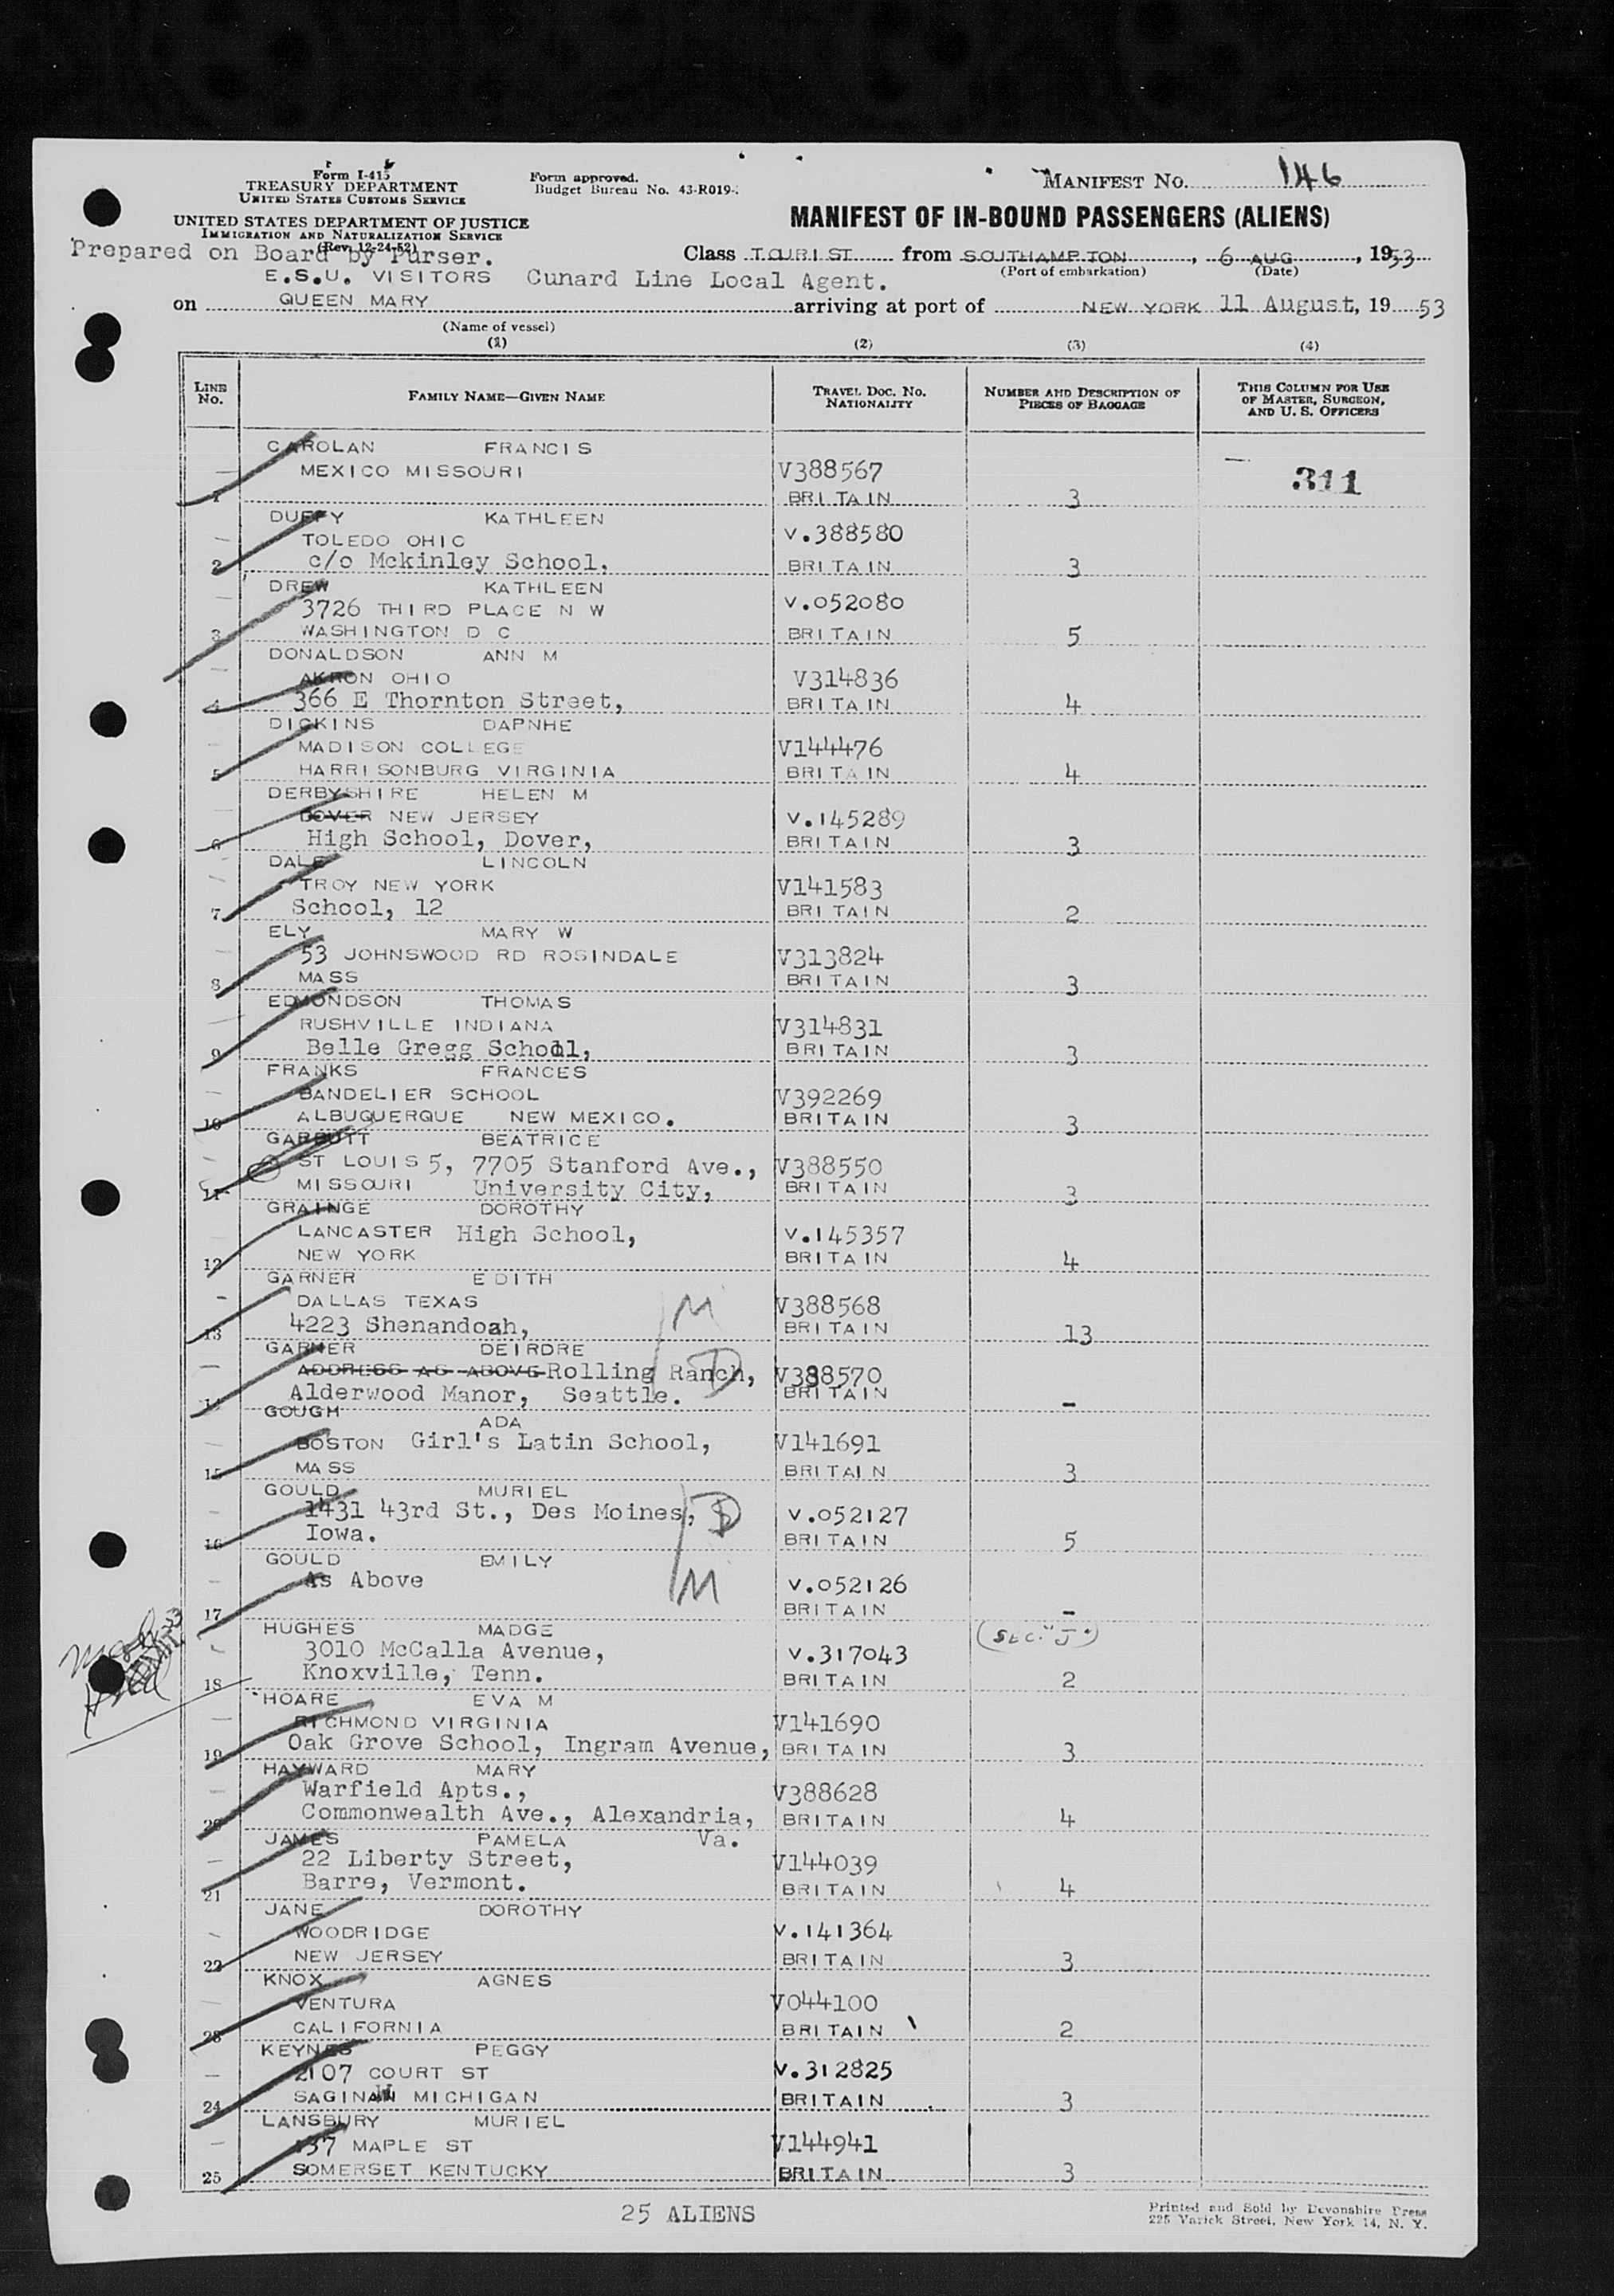 Form I-415
TREASURY DEPARTMENT
UNITED STATES CUSTOMS SERVICE
UNITED STATES DEPARTMENT OF JUSTICE
IMMIGRATION AND NATURALIZATION SERVICE
(Rev. 12-24-52)
Form approved.
Budget Bureau No. 43-R019-
MANIFEST NO. 146
MANIFEST OF IN-BOUND PASSENGERS (ALIENS)
Prepared on Board by Purser.
Class TOURIST from SOUTHAMPTON, 6 AUG, 1953
(Port of embarkation) (Date)
E.S.U. VISITORS Cunard Line Local Agent.
on QUEEN MARY arriving at port of NEW YORK 11 August, 19 53
(Name of vessel)
(1) (2) (3) (4)
LINE NO. FAMILY NAME—GIVEN NAME TRAVEL DOC. NO. NATIONALITY NUMBER AND DESCRIPTION OF PIECES OF BAGGAGE THIS COLUMN FOR USE OF MASTER, SURGEON, AND U. S. OFFICERS
CAROLAN FRANCIS
MEXICO MISSOURI V388567 311
1 BRITAIN 3
DUFFY KATHLEEN
TOLEDO OHIO V.388580
2 c/o Mckinley School, BRITAIN 3
DREW KATHLEEN
3726 THIRD PLACE N W V.052080
3 WASHINGTON D C BRITAIN 5
DONALDSON ANN M
AKRON OHIO V314836
4 366 E Thornton Street, BRITAIN 4
DICKINS DAPNHE
MADISON COLLEGE V144476
5 HARRISONBURG VIRGINIA BRITAIN 4
DERBYSHIRE HELEN M
DOVER NEW JERSEY V.145289
6 High School, Dover, BRITAIN 3
DALE LINCOLN
TROY NEW YORK V141583
7 School, 12 BRITAIN 2
ELY MARY W
53 JOHNSWOOD RD ROSINDALE V313824
8 MASS BRITAIN 3
EDMONDSON THOMAS
RUSHVILLE INDIANA V314831
9 Belle Gregg School, BRITAIN 3
FRANKS FRANCES
BANDELIER SCHOOL V392269
10 ALBUQUERQUE NEW MEXICO. BRITAIN 3
GARBUTT BEATRICE
ST LOUIS 5, 7705 Stanford Ave., V388550
11 MISSOURI University City, BRITAIN 3
GRAINGE DOROTHY
LANCASTER High School, V.145357
12 NEW YORK BRITAIN 4
GARNER EDITH
DALLAS TEXAS M V388568
13 4223 Shenandoah, BRITAIN 13
GARNER DEIRDRE
ADDRESS AS ABOVE Rolling Ranch, D V388570
14 Alderwood Manor, Seattle. BRITAIN -
GOUGH ADA
BOSTON Girl's Latin School, V141691
15 MASS BRITAIN 3
GOULD MURIEL
1431 43rd St., Des Moines, D V.052127
16 Iowa. BRITAIN 5
GOULD EMILY
As Above M V.052126
17 BRITAIN -
HUGHES MADGE (SEC. "J")
3010 McCalla Avenue, V.317043
18 Knoxville, Tenn. BRITAIN 2
HOARE EVA M
RICHMOND VIRGINIA V141690
19 Oak Grove School, Ingram Avenue, BRITAIN 3
HAYWARD MARY
Warfield Apts., V388628
20 Commonwealth Ave., Alexandria, BRITAIN 4
JAMES PAMELA Va.
22 Liberty Street, V144039
21 Barre, Vermont. BRITAIN 4
JANE DOROTHY
WOODRIDGE V.141364
22 NEW JERSEY BRITAIN 3
KNOX AGNES
VENTURA V044100
23 CALIFORNIA BRITAIN 2
KEYNES PEGGY
2107 COURT ST V.312825
24 SAGINAW MICHIGAN BRITAIN 3
LANSBURY MURIEL
137 MAPLE ST V144941
25 SOMERSET KENTUCKY BRITAIN 3
25 ALIENS
Printed and Sold by Devonshire Press
225 Varick Street, New York 14, N. Y.